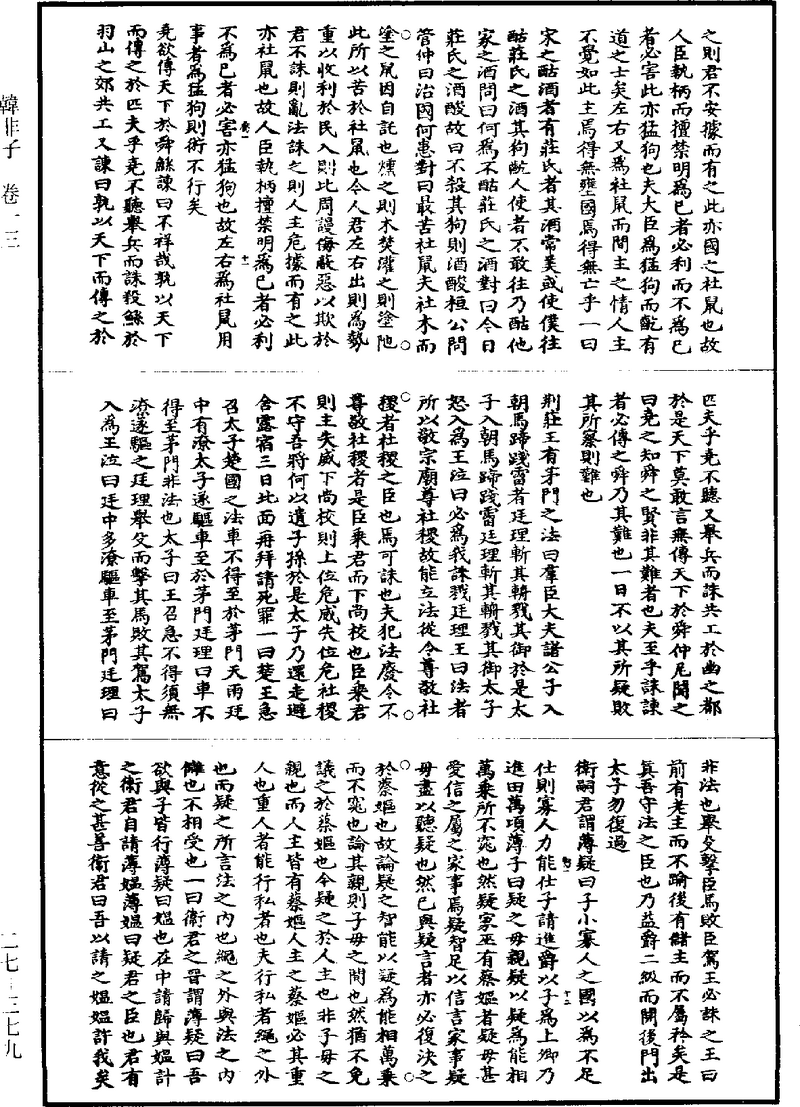 之則君不安據而有之此亦國之社鼠也故
人臣執柄而擅禁明為已者必利而不為已
者必害此亦猛狗也夫大臣為猛狗而齕有
道之士矣左右又為社鼠而間主之情人主
不覺如此主焉得無壅國焉得無亡乎一曰
宋之酤酒者有莊氏者其酒常美或使僕往
酤莊氏之酒其狗齕人使者不敢往乃酤他
家之酒問曰何為不酤莊氏之酒對曰今日
莊氏之酒酸故曰不殺其狗則酒酸桓公問
管仲曰治國何患對曰最苦社鼠夫社木而
塗之鼠因自託也燻之則木焚灌之則塗阤
此所以苦於社鼠也今人君左右出則為勢
重以收利於民入則比周謾侮蔽惡以欺於
君不誅則亂法誅之則人主危據而有之此
亦社鼠也故人臣執柄擅禁明為已者必利
不為已者必害亦猛狗也故左右為社鼠用
事者為猛狗則術不行矣
堯欲傳天下於舜鯀諫曰不祥哉孰以天下
而傳之於匹夫乎堯不聽舉兵而誅殺鯀於
羽山之郊共工又諫曰孰以天下而傳之於
匹夫乎堯不聽又舉兵而誅共工於幽之都
於是天下莫敢言無傳天下於舜仲尼聞之
曰堯之知舜之賢非其難者也夫至乎誅諫
者必傳之舜乃其難也一曰不以其所疑敗
其所察則難也
荆莊王有茅門之法曰羣臣大夫諸公子入
朝馬蹄踐霤者廷理斬其輈戮其御於是太
子入朝馬蹄踐霤廷理斬其輈戮其御太子
怒入為王泣曰必為我誅戮廷理王曰法者
所以敬宗廟尊社稷故能立法從令尊敬社
稷者社稷之臣也焉可誅也夫犯法廢令不
尊敬社稷者是臣乘君而下尚校也臣乘君
則主失威下尚校則上位危威失位危社稷
不守吾將何以遺子孫於是太子乃還走避
舍露宿三日北面再拜請死罪一曰楚王急
召太子楚國之法車不得至於茅門天雨廷
中有潦太子遂驅車至於茅門廷理曰車不
得至茅門非法也太子曰王召急不得須無
潦遂驅之廷理舉殳而擊其馬敗其駕太子
入為王泣曰廷中多潦驅車至茅門廷理曰
非法也舉殳擊臣馬敗臣駕王必誅之王曰
前有老主而不踰後有儲主而不屬矜矣是
真吾守法之臣也乃益爵二級而開後門出
太子勿復過
衛嗣君謂薄疑曰子小寡人之國以為不足
仕則寡人力能仕子請進爵以子為上卿乃
進田萬項薄子曰疑之母親疑以疑為能相
萬乘所不窕也然疑家巫有蔡嫗者疑母甚
愛信之屬之家事焉疑智足以信言家事疑
母盡以聽疑也然已與疑言者亦必復決之
於蔡嫗也故論疑之智能以疑為能相萬乘
而不窕也論其親則子母之間也然猶不免
議之於蔡嫗也今疑之於人主也非子母之
親也而人主皆有蔡嫗人主之蔡嫗必其重
人也重人者能行私者也夫行私者繩之外
也而疑之所言法之內也繩之外與法之內
讎也不相受也一曰衛君之晉謂薄疑曰吾
欲與子皆行薄疑曰嫗也在中請歸與嫗計
之衛君自請薄嫗薄嫗曰疑君之臣也君有
意從之甚善衛君曰吾以請之嫗嫗許我矣
韓非子 卷一三
二七—三七九